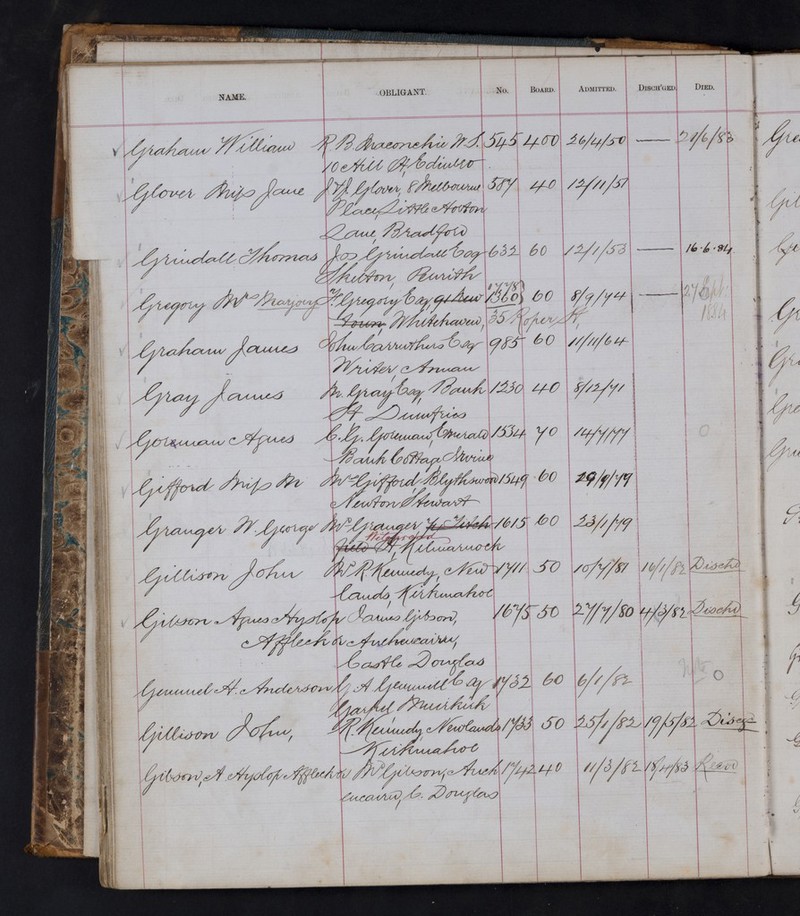 NAME. OBLIGANT. No. BOARD. ADMITTED. DISCH'GED. DIED.
Graham William R B Maconchie W.S. 545 400 26/4/50 — 21/6/83
10 Hill St, Edinbro
Glover Miss Jane J. Glover, 8 Melbourne 587 40 12/11/51
Place, Little Horton
Lane, Bradford
Grindall Thomas Jos Grindall Esq 632 60 12/1/53 — 16.6.84
Skelton, Penrith
Gregory Mrs Marjory Gregory Esq, 91 New 1360 60 8/9/74 — 27 Sept. 1884
Town Whitehaven, 35 Roper St,
Graham James John Carruthers Esq 985 60 11/11/64
Writer, Annan
Gray James Gray Esq, Bank 1230 40 8/12/71
St Dumfries
Agnes C. G. Emerald 1534 70 14/7/77
Bank Cottage, Irvine
Gifford Miss M Mrs Gifford, Blythswood 1549 60 29/9/79
Newton Stewart
Granger W. George Mrs Granger 1615 60 23/1/79
field St, Kilmarnock
Gillison John R. Kennedy, New 1711 50 10/7/81 16/1/82 Dischd
lands, Kirkmahoe
Gibson Agnes Hyslop James Gibson, 1675 50 27/7/80 4/3/82 Dischd
Affleck or Auchencairn,
Castle Douglas
Gemmel A. Anderson A Gemmell Esq 1732 60 6/1/82
Muirkirk
Gillison John, R. Kennedy Newlands 1733 50 25/1/82 19/5/82
Kirkmahoe
Gibson, A. Hyslop Affleck or Gibson, Auch 1742 40 11/3/82 18/4/83 Recod
encairn, C. Douglas